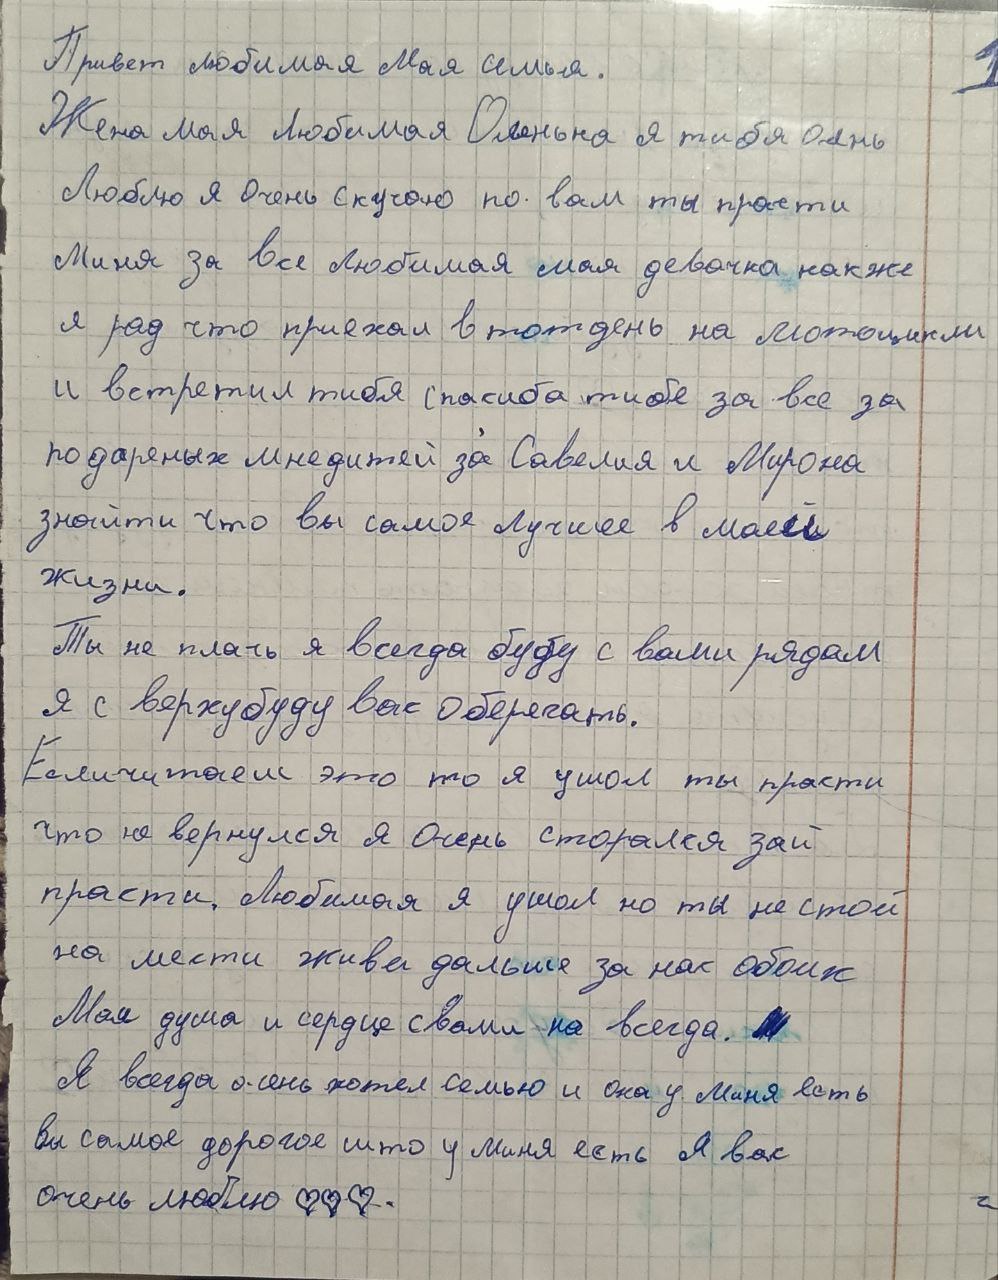 1
Привет любимая Мая семья.
Жена мая любимая Оленька я тибя очень
Люблю я очень скучаю по вам ты прасти
Миня за все любимая мая девачка как же
я рад что приехал в тот день на мотоцикли
и встретил тибя спасиба тибе за все за
подареных мне дитей за Савелия и Мирона
знайти что вы самое лучшее в маей
жизни.
Ты не плачь я всегда буду с вами рядам
я с верху буду вас оберегать.
Если читаем это то я ушол ты прасти
что не вернулся я очень сторался зай
прасти. Любимая я ушол но ты не стой
на мести живи дальше за нас обоих
Мая душа и сердце с вами на всегда.
Я всегда очень хотел семью и она у миня есть
Вы самое дорогое што у миня есть Я вас
очень люблю ♡♡♡.